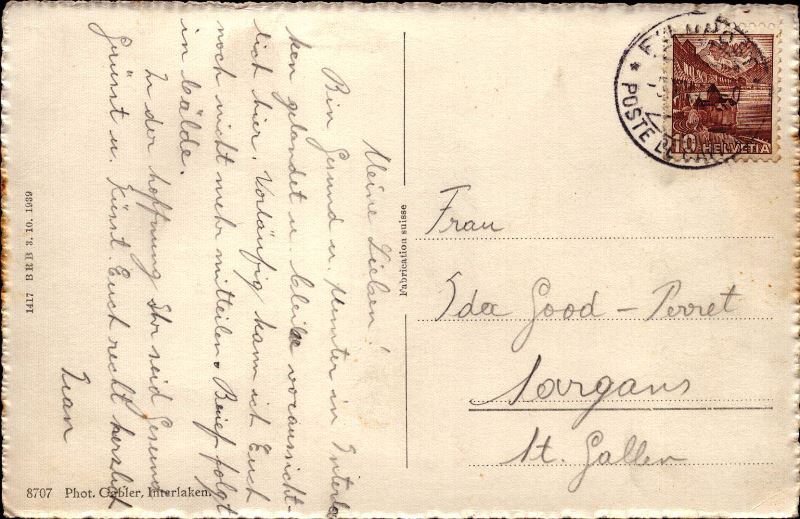 Meine Lieben!
Bin Gesund u. Munter in Interla
ken gelandet u. bleibe voraussicht-
lich hier. Vorläufig kann ich Euch
noch nicht mehr mitteilen. Brief folgt
in bälde.
In der hoffnung Ihr seid Gesund
Grüsst u. Küsst Euch recht herzlich
Frau
Ida Good - Perret
Sargans
St. Gallen
Fabrication suisse
1417 BRB 3. 10. 1939
8707 Phot. Gabler, Interlaken.
10 HELVETIA
POSTE DE CAM